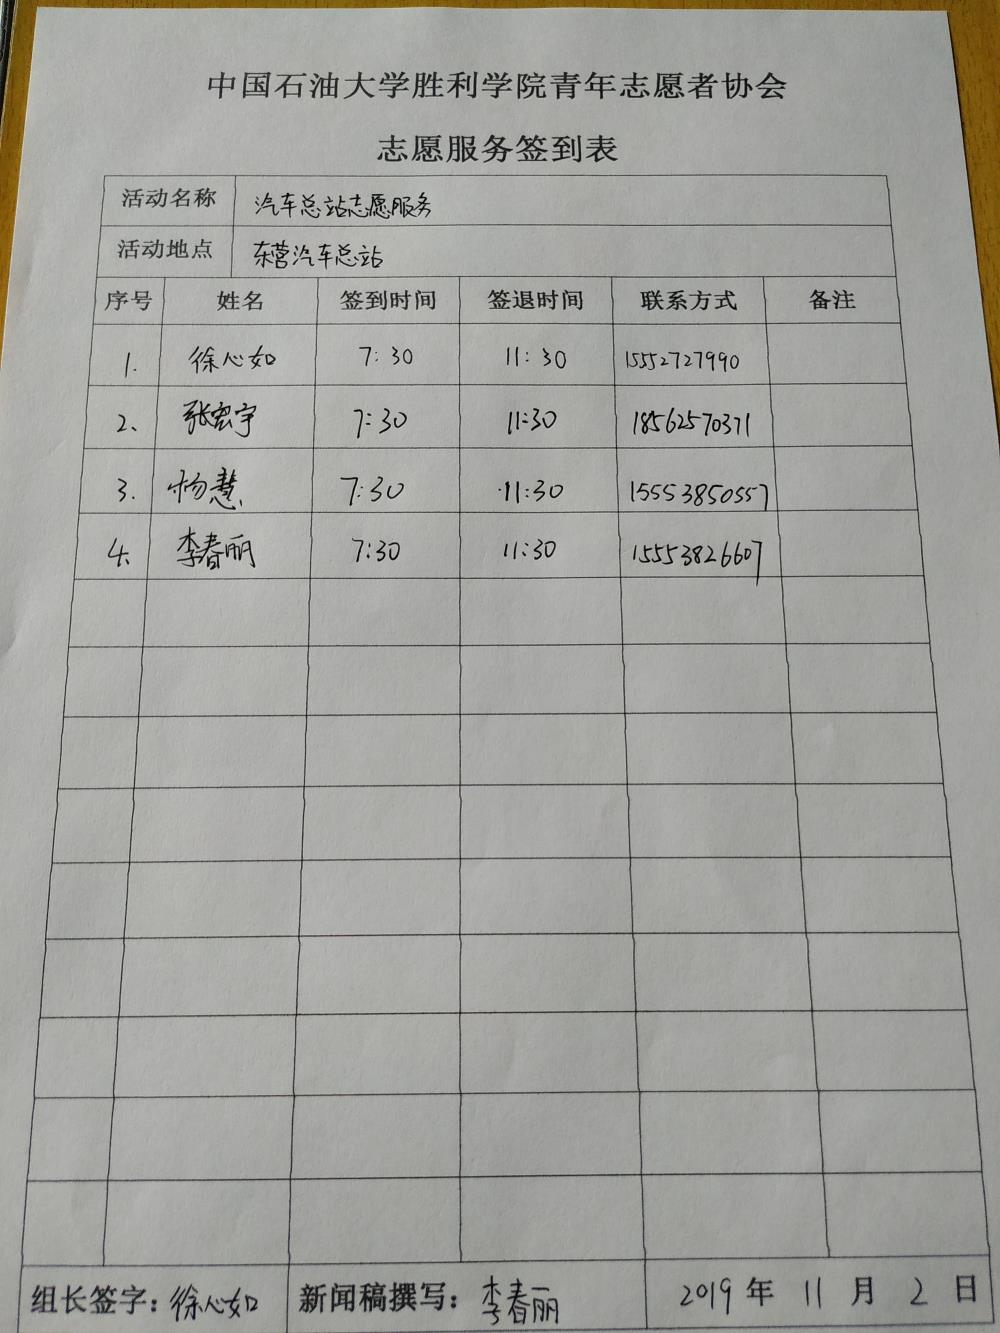 中国石油大学胜利学院青年志愿者协会
志愿服务签到表
活动名称 汽车总站志愿服务
活动地点 东营汽车总站
序号 姓名 签到时间 签退时间 联系方式 备注
1. 徐心如 7:30 11:30 1552727990
2、 张宏宇 7:30 11:30 18562570371
3. 杨慧 7:30 11:30 15553850557
4. 李春丽 7:30 11:30 15553826607
组长签字：徐心如 新闻稿撰写：李春丽 2019 年 11 月 2 日